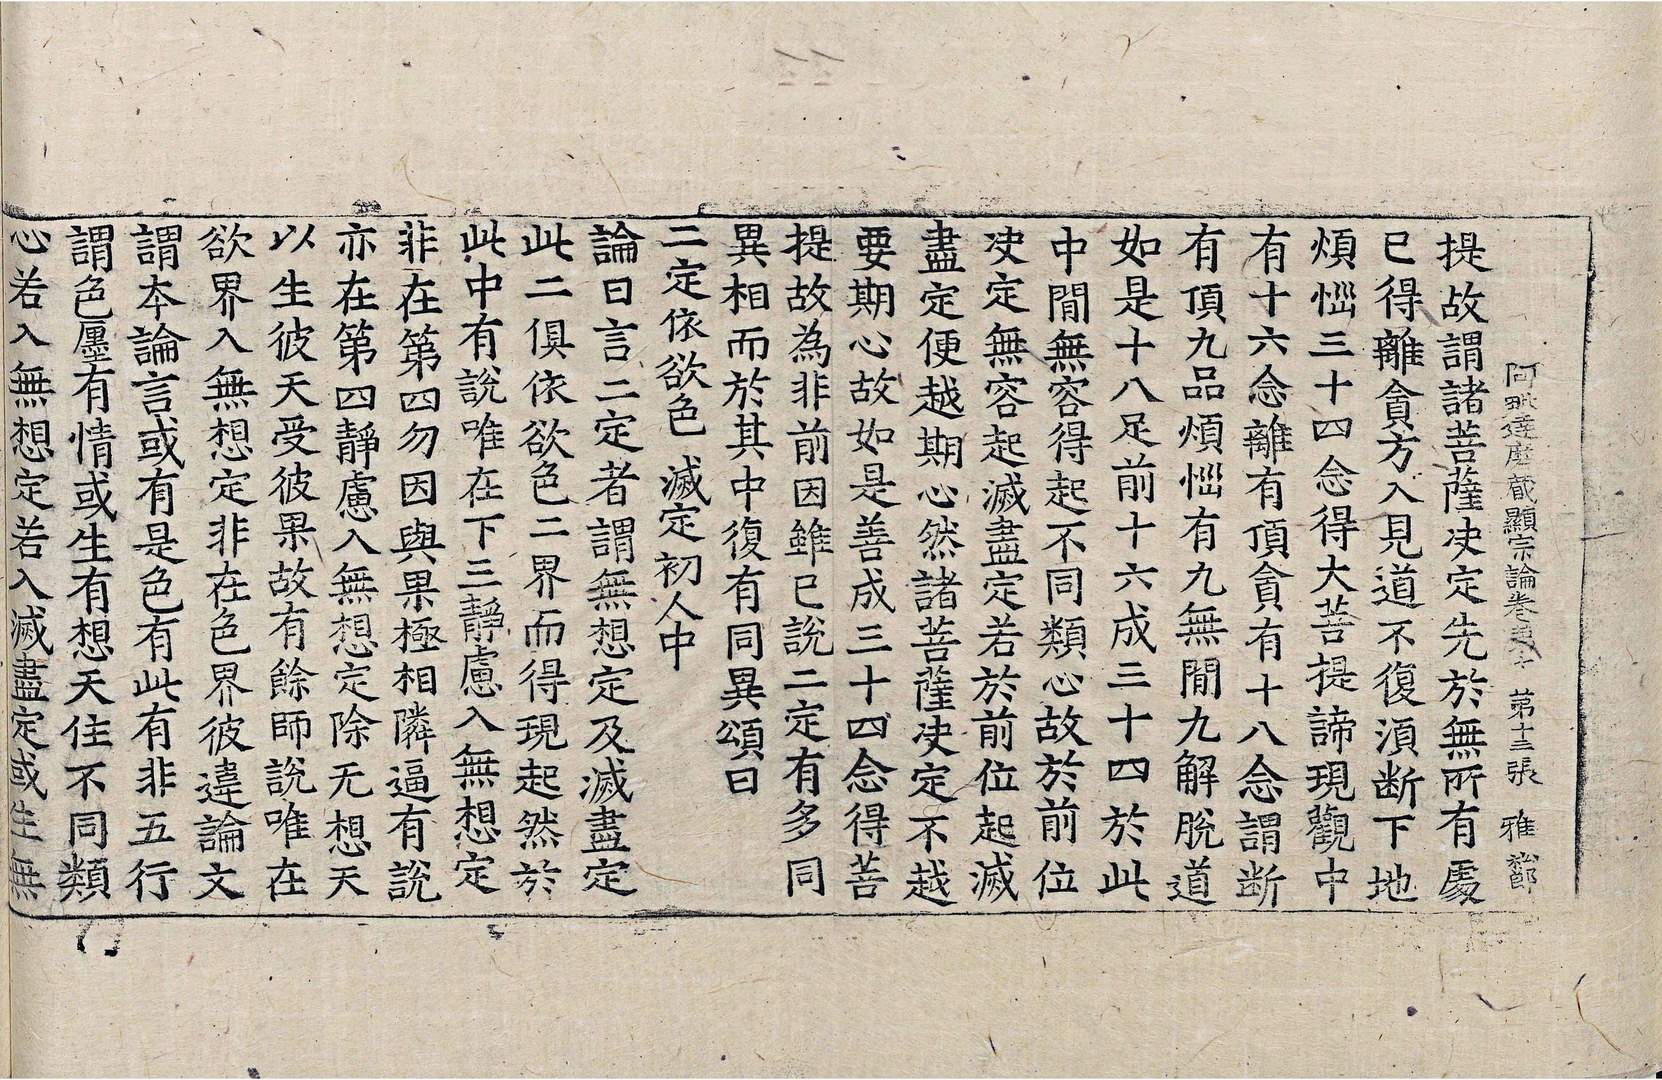 阿毗達磨藏顯宗論卷 第十三張 雅
提故謂諸菩薩决定先於無所有處
已得離貪方入見道不復湏断下地
煩惱三十四念得大菩提諦現觀中
有十六念離有頂貪有十八念謂断
有頂九品煩惱有九無閒九解脫道
如是十八足前十六成三十四於此
中閒無容得起不同類心故於前位
决定無容起滅盡定若於前位起滅
盡定便越期心然諸菩薩决定不越
要期心故如是善成三十四念得菩
提故為非前因雖已說二定有多同
異相而於其中復有同異頌曰
二定依欲色 滅定初人中
論曰言二定者謂無想定及滅盡定
此二俱依欲色二界而得現起然於
此中有說唯在下三靜慮入無想定
非在第四勿因與果極相隣逼有說
亦在第四靜慮入無想定除无想天
以生彼天受彼果故有餘師說唯在
欲界入無想定非在色界彼違論文
謂本論言或有是色有此有非五行
謂色㕓有情或生有想天住不同類
心若入無想定若入滅盡定或生無